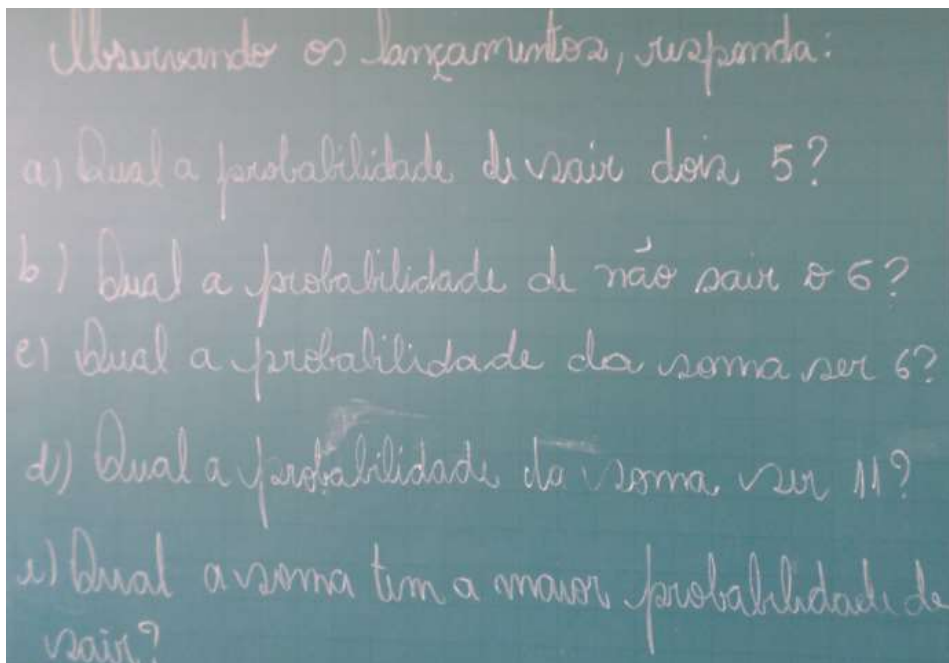 Observando os lançamentos, responda:
a) Qual a probabilidade de sair dois 5?
b) Qual a probabilidade de não sair o 6?
c) Qual a probabilidade da soma ser 6?
d) Qual a probabilidade da soma ser 11?
e) Qual a soma tem a maior probabilidade de
sair?